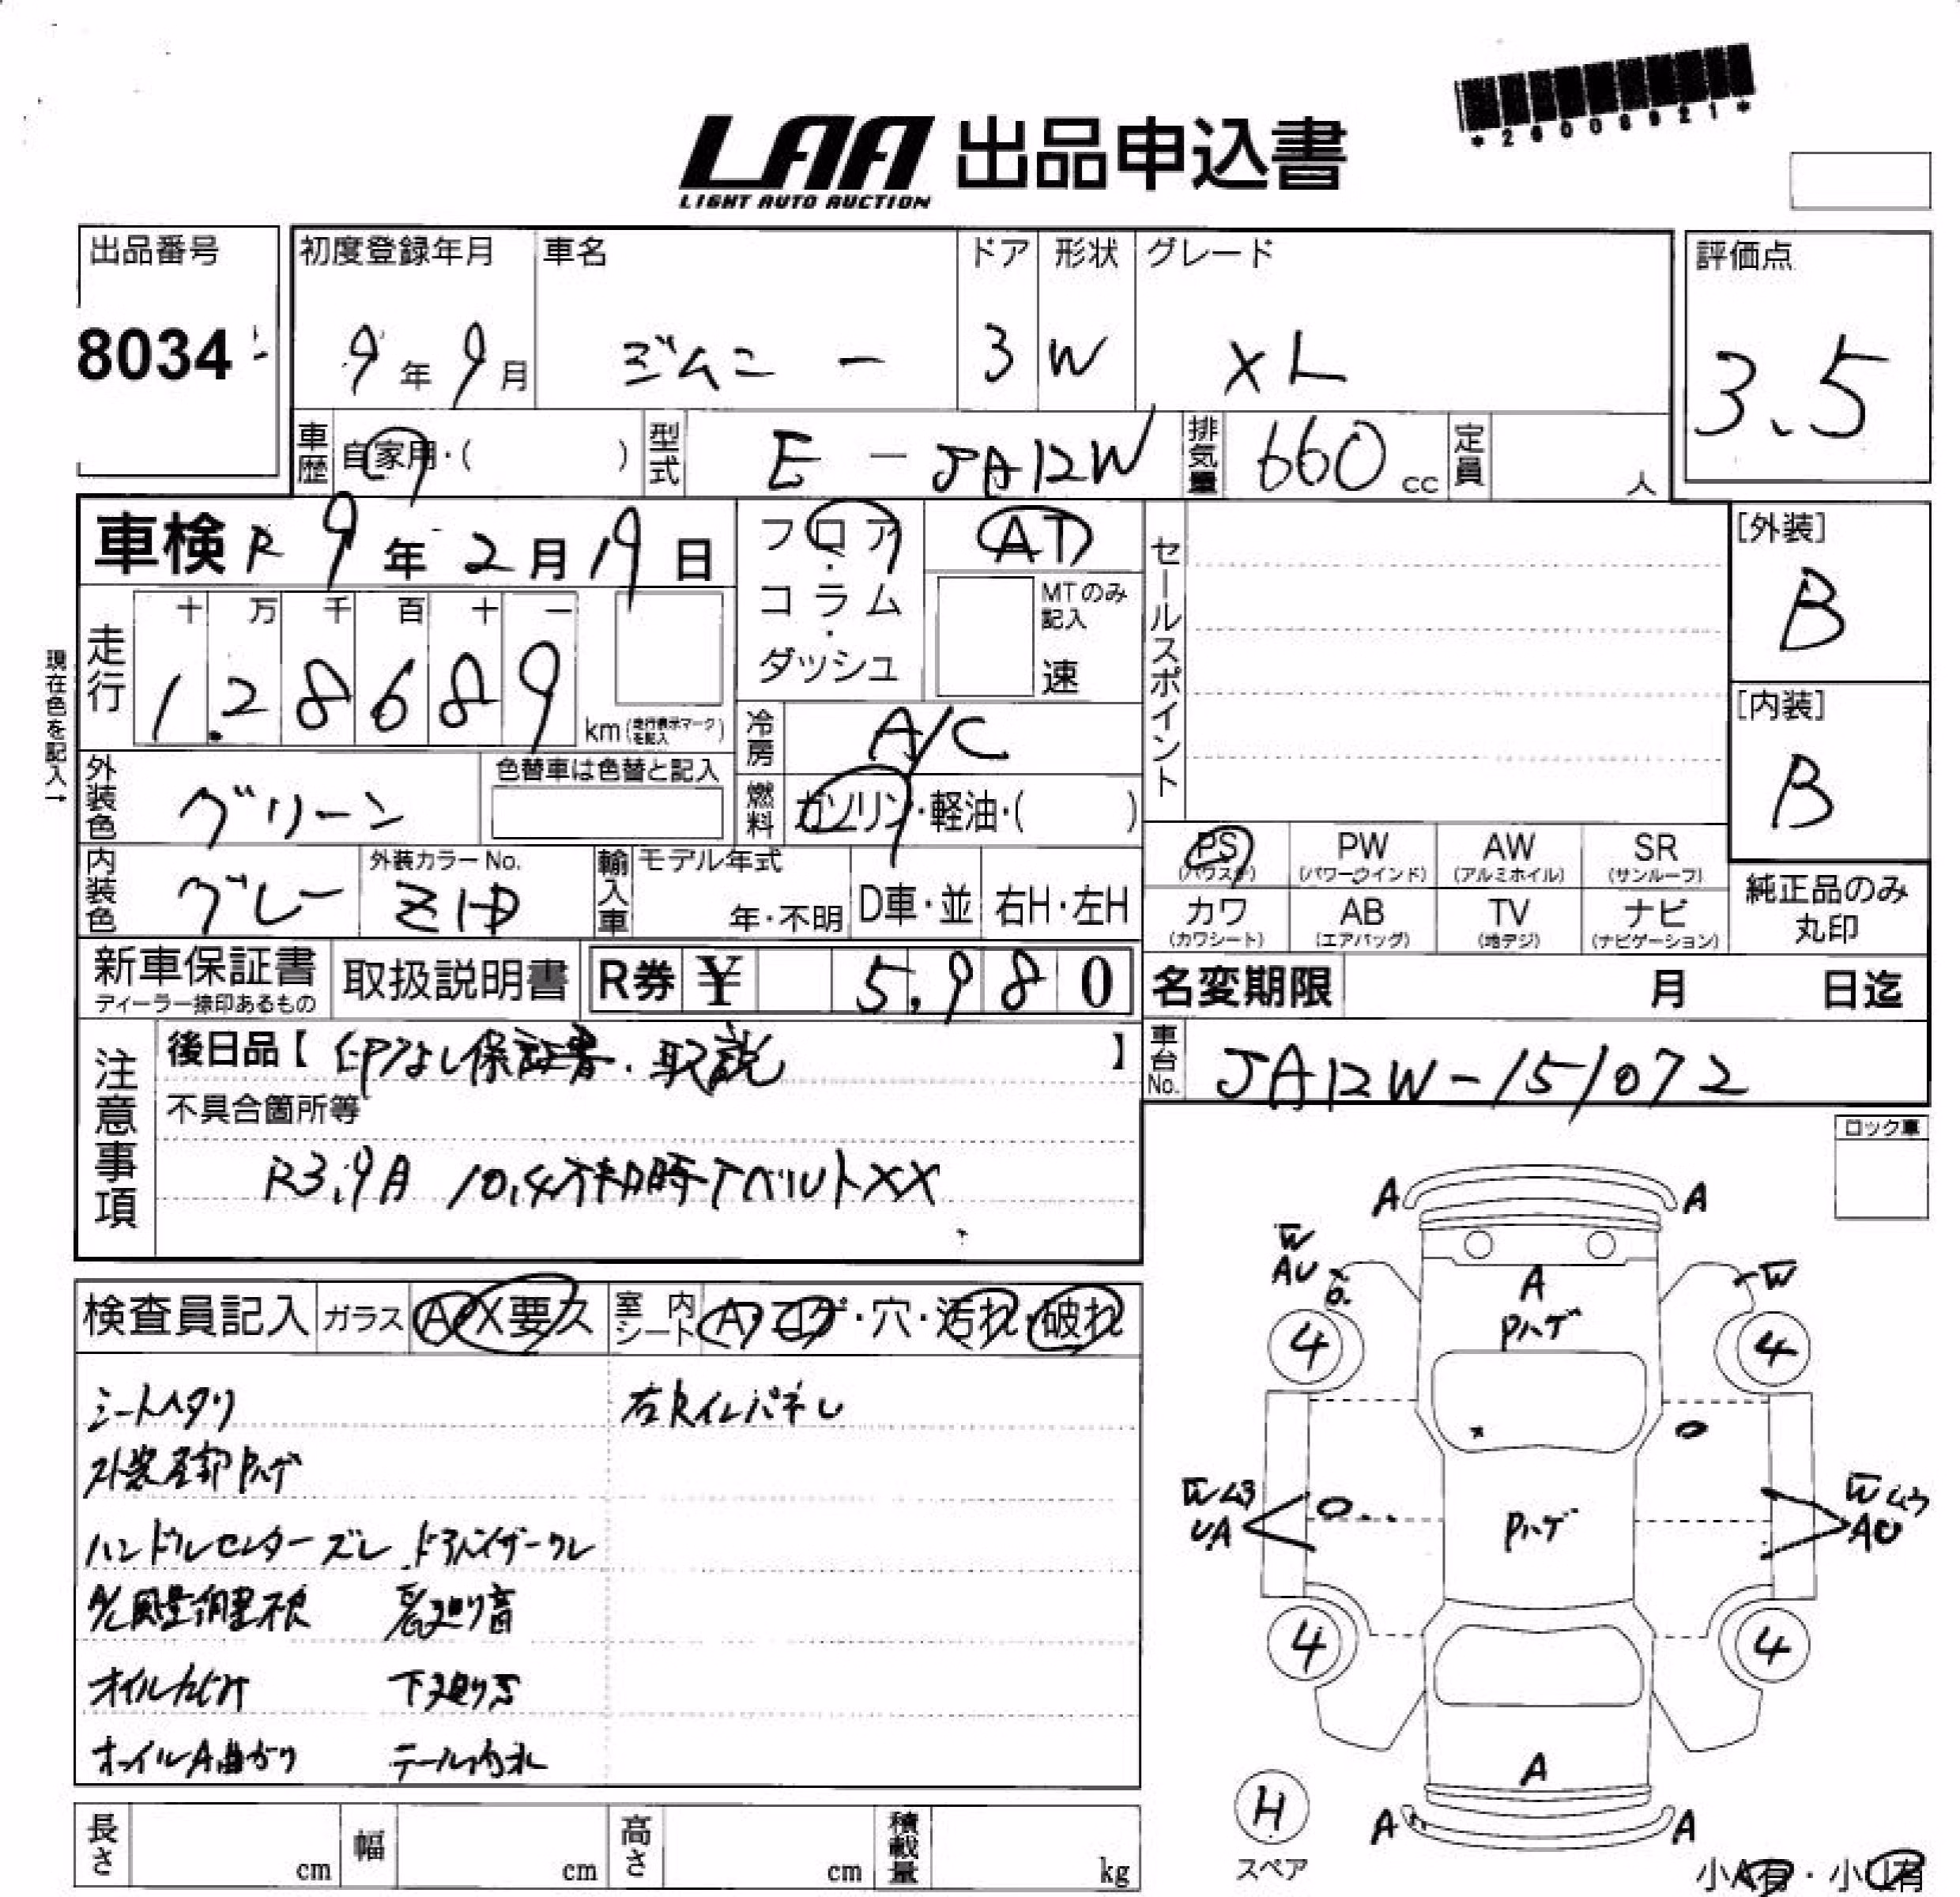 *26008921*
LAA 出品申込書
LIGHT AUTO AUCTION
出品番号
8034
初度登録年月 車名 ドア 形状 グレード
9年 9月 ジムニー 3 W XL
評価点
3.5
車歴 自家用・( ) 型式 E-JA12W 排気量 660cc 定員 人
車検 R 9年 2月 19日
フロア・コラム・ダッシュ
AT
MTのみ記入
速
セールスポイント
[外装]
B
[内装]
B
現在色を記入→
走行 十 万 千 百 十 一
1.28689 km (走行表示マークを記入)
冷房 A/C
外装色 グリーン 色替車は色替と記入
燃料 ガソリン・軽油・( )
内装色 グレー 外装カラーNo. Z1D
輸入車 モデル年式 年・不明 D車・並 右H・左H
PS (パワステ) PW (パワーウインド) AW (アルミホイル) SR (サンルーフ)
カワ (カワシート) AB (エアバッグ) TV (地デジ) ナビ (ナビゲーション)
純正品のみ丸印
新車保証書 ディーラー捺印あるもの 取扱説明書 R券 ¥ 5,980
名変期限 月 日迄
注意事項
後日品【 印なし保証書.取説 】
車台No. JA12W-151072
不具合箇所等
R3.9月 10.4万キロ時Tベルト××
ロック車
検査員記入 ガラス A・X要ス 室内シート A・コゲ・穴・汚れ・破れ
シートヘタリ
外装全部Pハゲ
ハンドルセンターズレ ドアバイザークレ
A/C風量調整不良
オイルカビ汁
テール内水
A A
W
AU
W
A
Pハゲ
4 4
Wム3
UA
Pハゲ
Wム3
AU
4 4
A
H
スペア
A A
小A有・小U有
長さ cm 幅 cm 高さ cm 積載量 kg